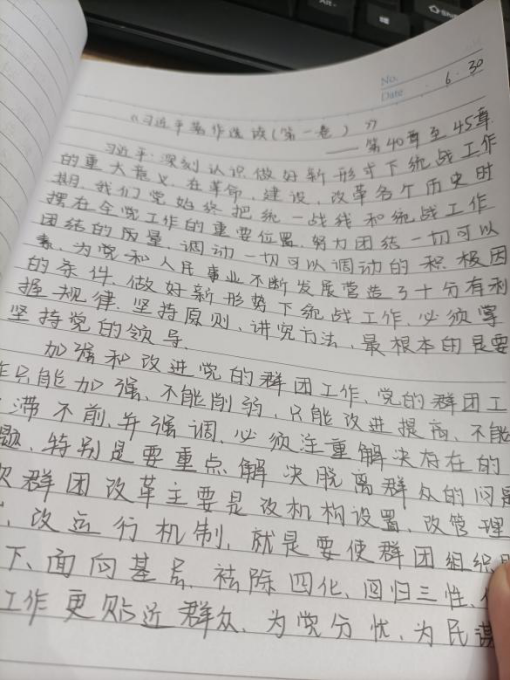 No.
Date 6.30
《习近平著作选读(第一卷)》
——第40章至45章
习近平:深刻认识做好新形式下统战工作
的重大意义,在革命、建设、改革各个历史时
期,我们党始终把统一战线和统战工作
摆在全党工作的重要位置,努力团结一切可以
团结的力量,调动一切可以调动的积极因
素,为党和人民事业不断发展营造了十分有利
的条件,做好新形势下统战工作,必须掌
握规律、坚持原则、讲究方法,最根本的是要
坚持党的领导.
加强和改进党的群团工作,党的群团工
作只能加强、不能削弱,只能改进提高、不能
滞不前,并强调,必须注重解决存在的
题,特别是要重点解决脱离群众的问题
次群团改革主要是改机构设置、改管理
、改运行机制,就是要使群团组织
下、面向基层,祛除四化、回归三性、
工作更贴近群众、为党分忧、为民谋